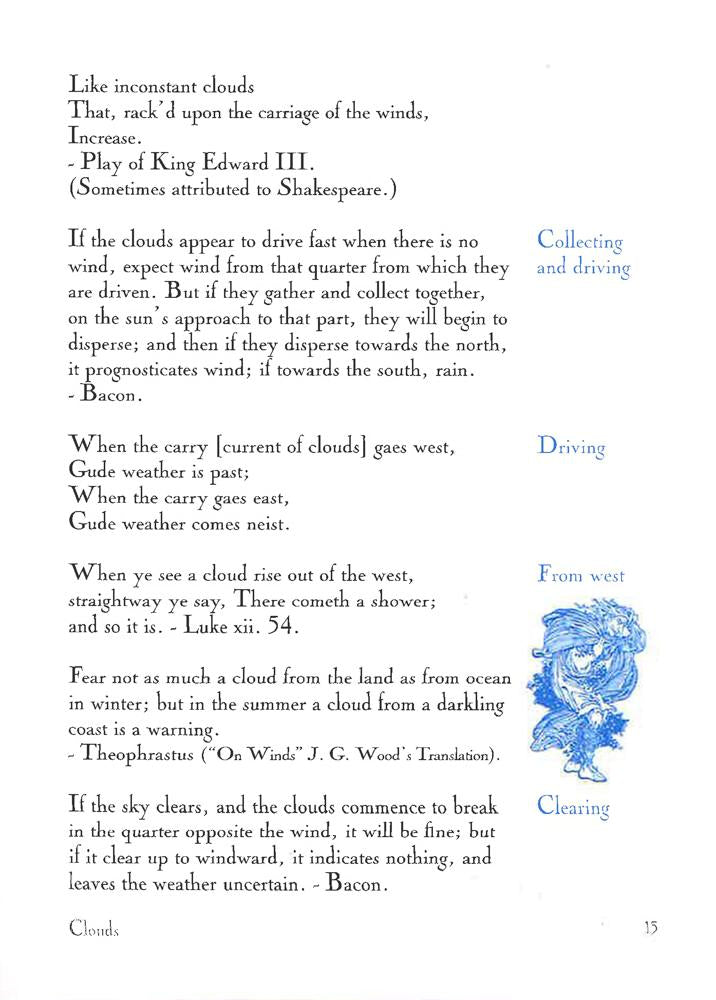 Like inconstant clouds
That, rack'd upon the carriage of the winds,
Increase.
- Play of King Edward III.
(Sometimes attributed to Shakespeare.)
If the clouds appear to drive fast when there is no
wind, expect wind from that quarter from which they
are driven. But if they gather and collect together,
on the sun's approach to that part, they will begin to
disperse; and then if they disperse towards the north,
it prognosticates wind; if towards the south, rain.
- Bacon.
Collecting
and driving
When the carry [current of clouds] gaes west,
Gude weather is past;
When the carry gaes east,
Gude weather comes neist.
Driving
When ye see a cloud rise out of the west,
straightway ye say, There cometh a shower;
and so it is. - Luke xii. 54.
From west
Fear not as much a cloud from the land as from ocean
in winter; but in the summer a cloud from a darkling
coast is a warning.
- Theophrastus ("On Winds" J. G. Wood's Translation).
If the sky clears, and the clouds commence to break
in the quarter opposite the wind, it will be fine; but
if it clear up to windward, it indicates nothing, and
leaves the weather uncertain. - Bacon.
Clearing
Clouds
15